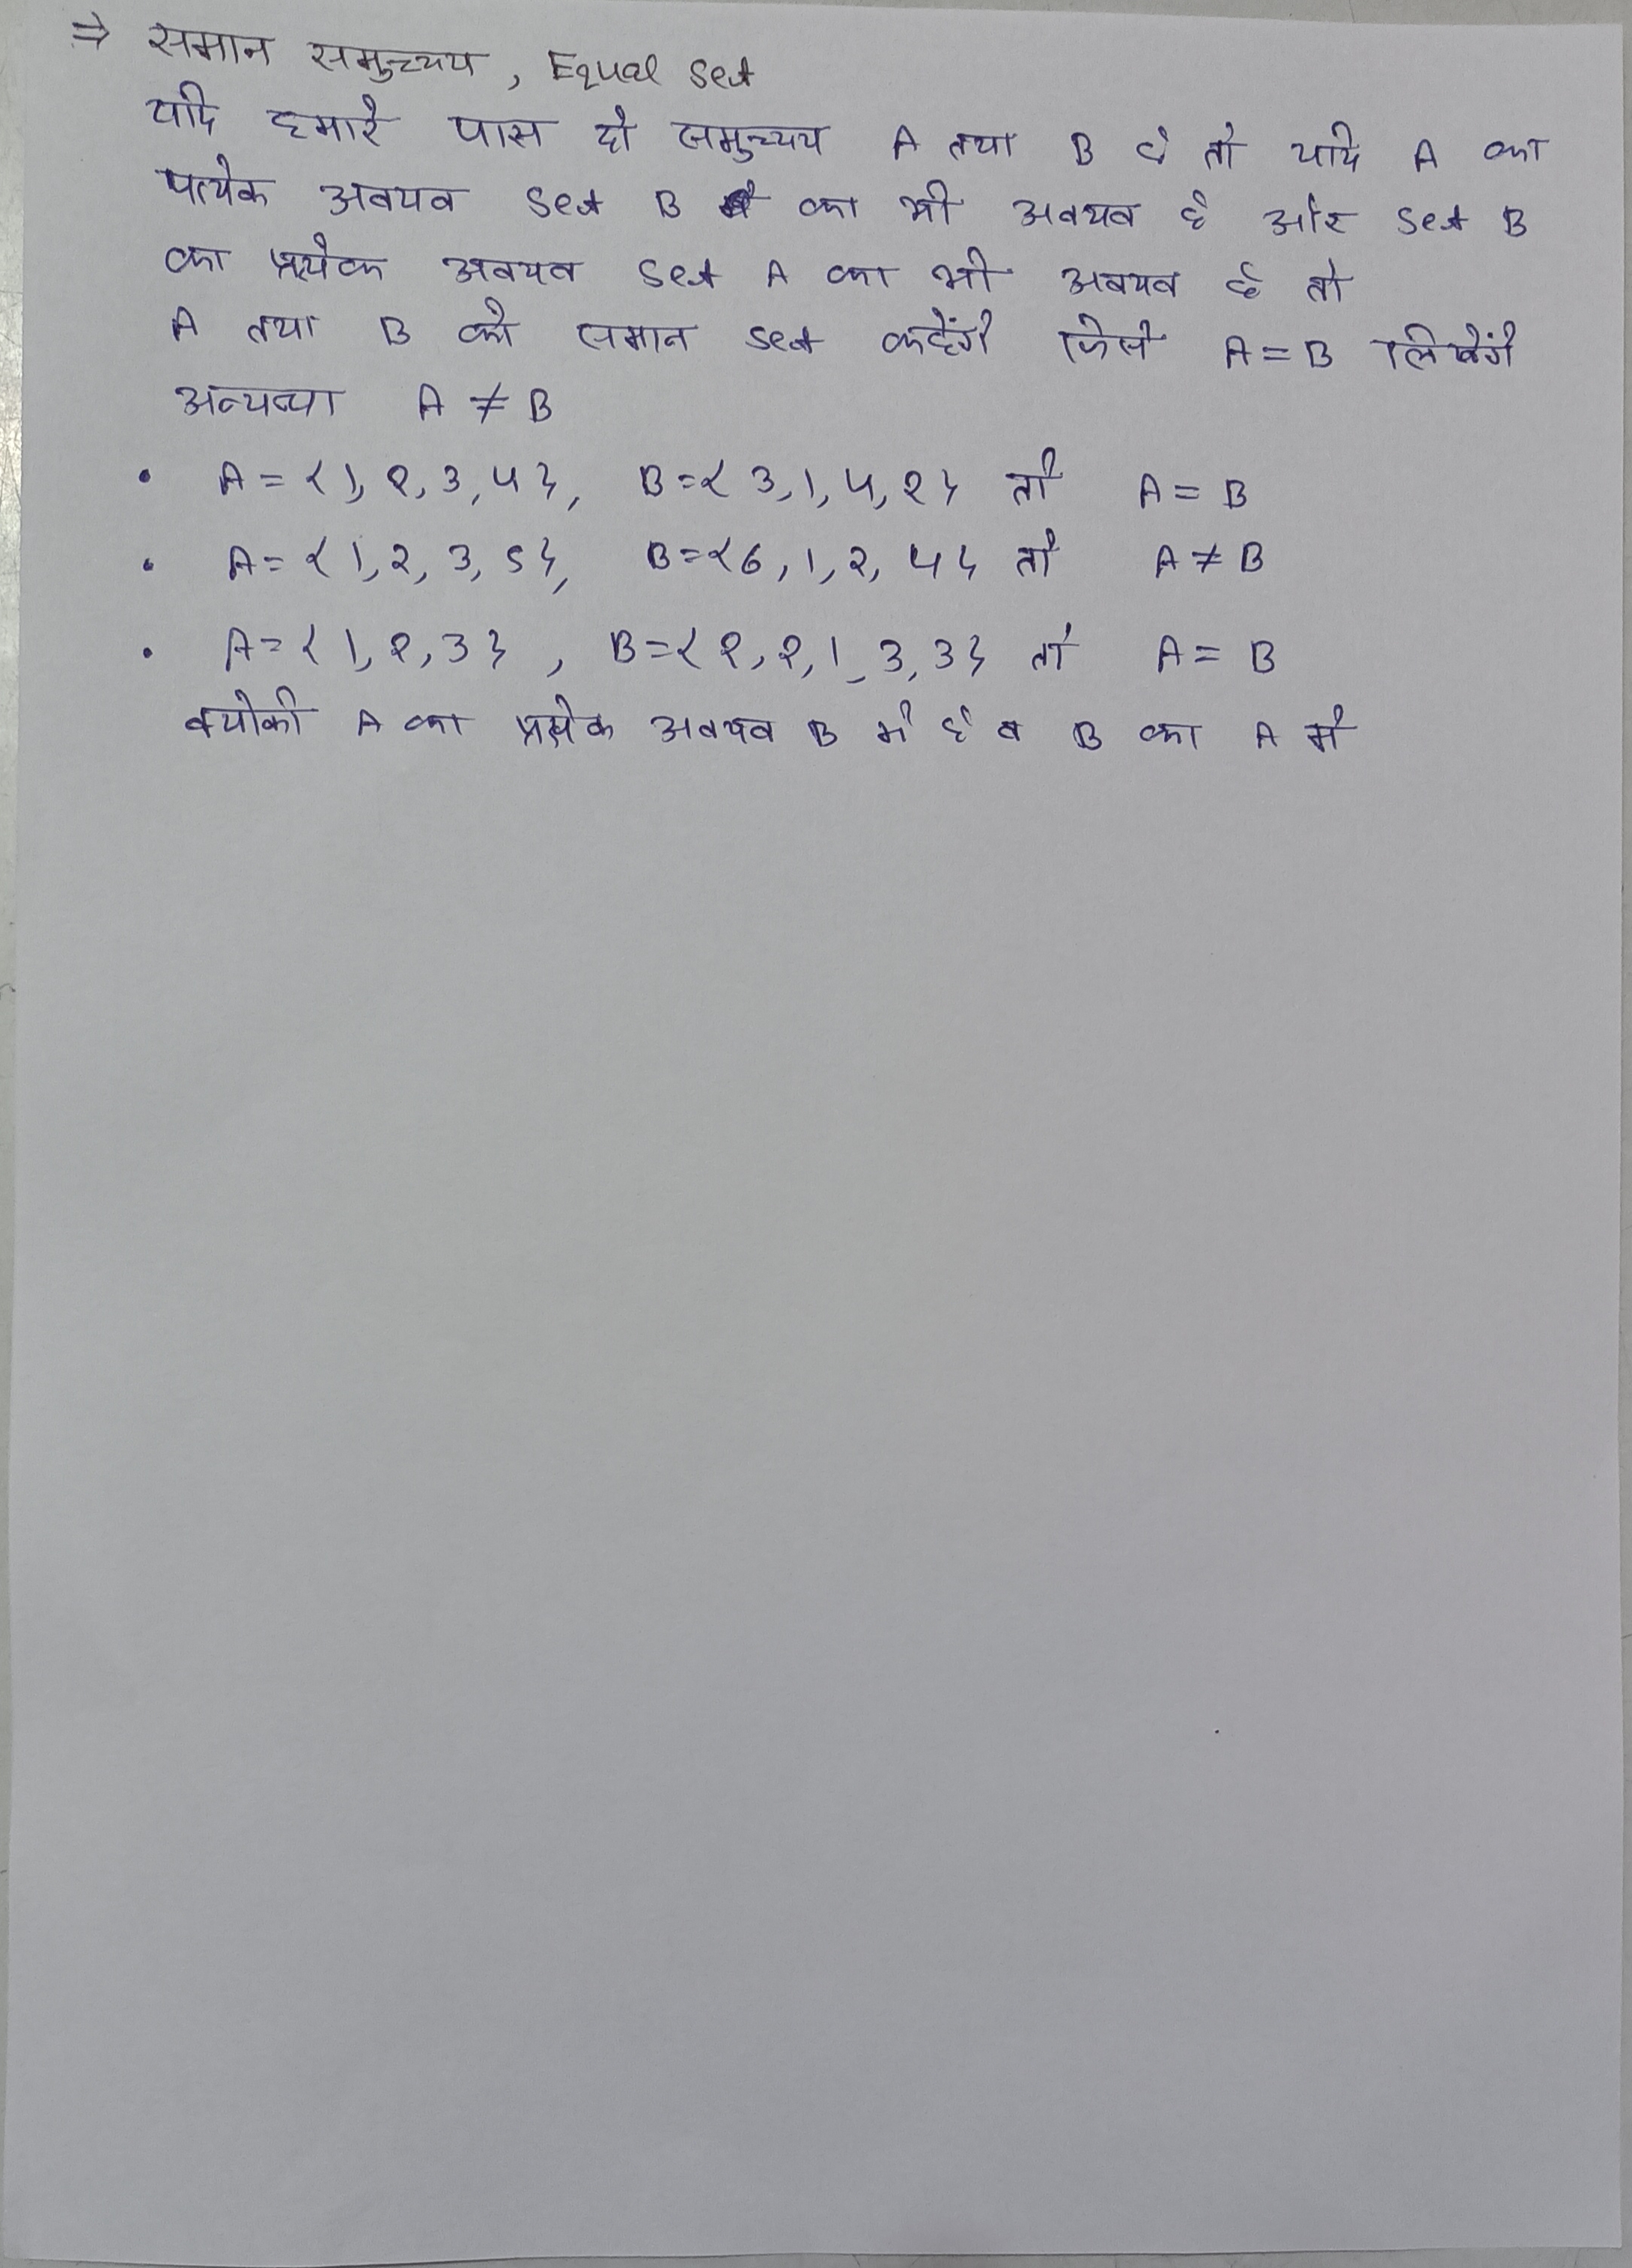 ⇒ समान समुच्चय, Equal Set
यदि हमारे पास दो समुच्चय A तथा B है तो यदि A का
प्रत्येक अवयव Set B का भी अवयव है और Set B
का प्रत्येक अवयव Set A का भी अवयव है तो
A तथा B को समान Set कहेंगे जिसे A = B लिखेंगे
अन्यथा A ≠ B
• A = { 1, 2, 3, 4 }, B = { 3, 1, 4, 2 } तो A = B
• A = { 1, 2, 3, 5 }, B = { 6, 1, 2, 4 } तो A ≠ B
• A = { 1, 2, 3 } , B = { 2, 2, 1, 3, 3 } तो A = B
क्योकी A का प्रत्येक अवयव B में है व B का A में